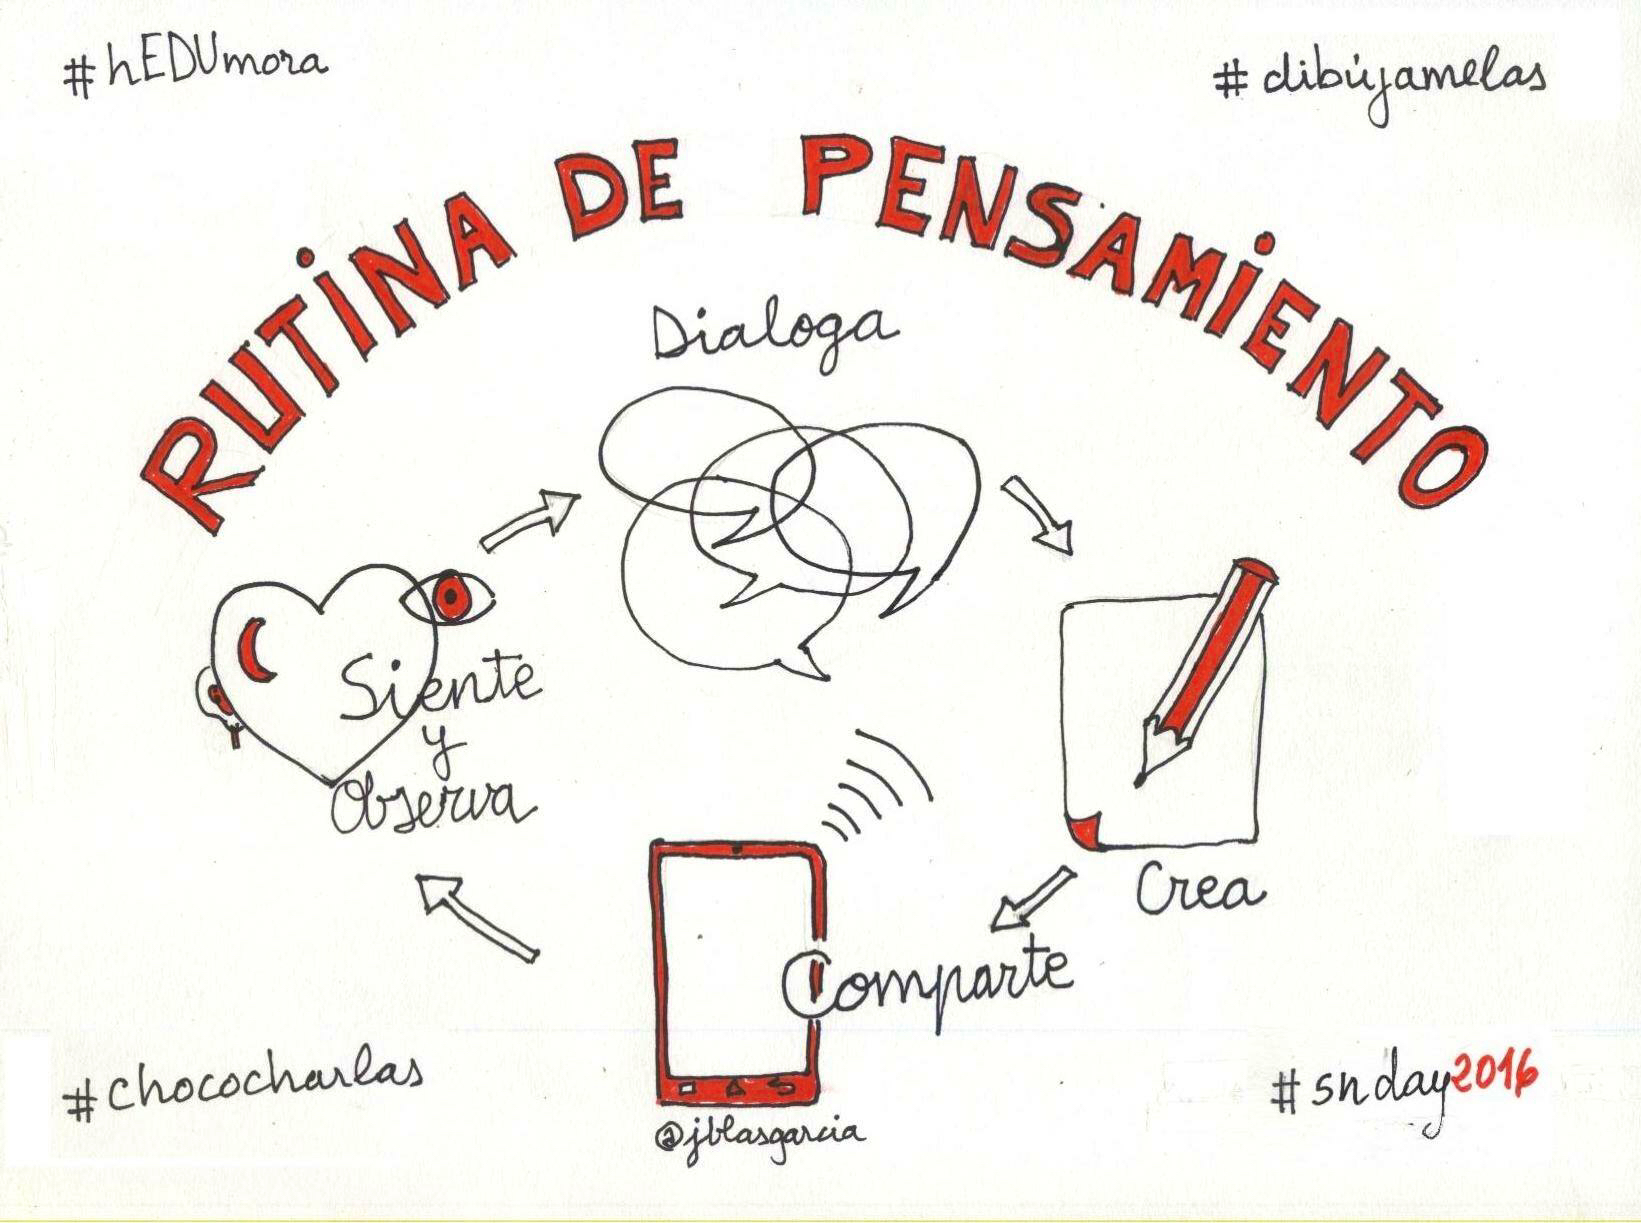 #hEDUmora
#dibújamelas
RUTINA DE PENSAMIENTO
Dialoga
Siente
y
Observa
Crea
Comparte
#chococharlas
#snday2016
@jblasgarcia